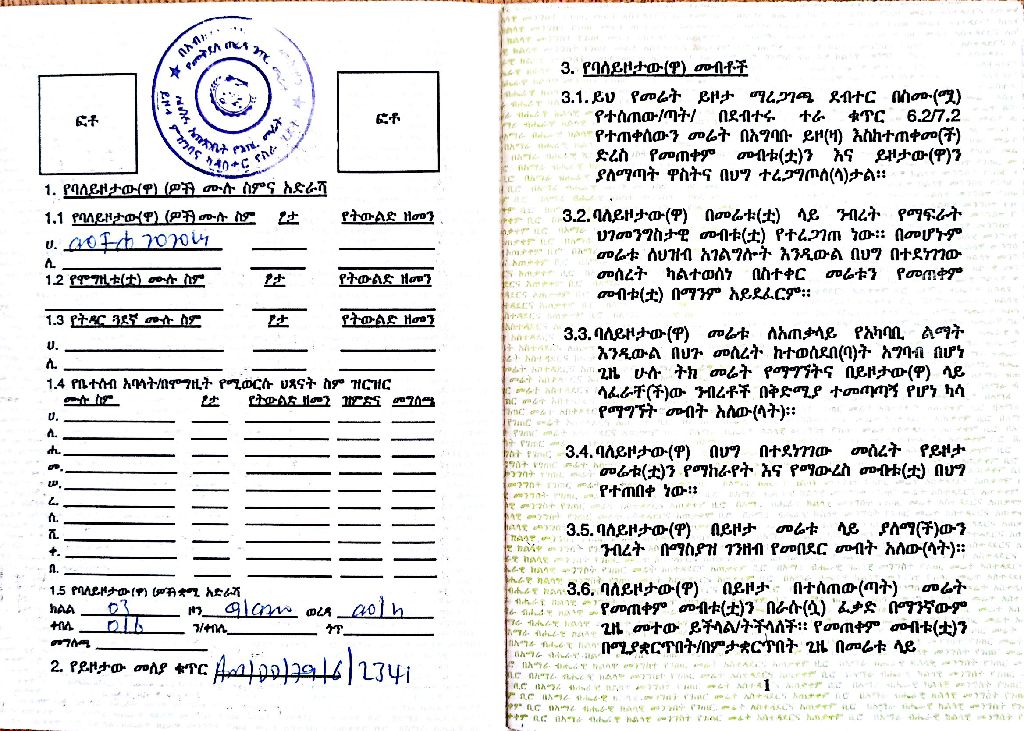 ፎቶ
ፎቶ
1. የባለይዞታው(ዋ) (ዎች) ሙሉ ስምና አድራሻ
1.1 የባለይዞታው(ዋ) (ዎች) ሙሉ ስም ፆታ የትውልድ ዘመን
ሀ.
ለ.
1.2 የሞግዚቱ(ቷ) ሙሉ ስም ፆታ የትውልድ ዘመን
1.3 የትዳር ጓደኛ ሙሉ ስም ፆታ የትውልድ ዘመን
ሀ.
ለ.
1.4 የቤተሰብ አባላት/በሞግዚት የሚወርሱ ህጻናት ስም ዝርዝር
ሙሉ ስም ፆታ የትውልድ ዘመን ዝምድና መግለጫ
ሀ.
ለ.
ሐ.
መ.
ሠ.
ረ.
ሰ.
ሸ.
ቀ.
በ.
1.5 የባለይዞታው(ዋ) (ዎች) ቋሚ አድራሻ
ክልል 03 ዞን ወረዳ
ቀበሌ 016 ን/ቀበሌ ጎጥ
መግለጫ
2. የይዞታው መለያ ቁጥር Am/00/29/6/2341
3. የባለይዞታው(ዋ) መብቶች
3.1. ይህ የመሬት ይዞታ ማረጋገጫ ደብተር በስሙ(ሟ)
የተሰጠው/ጣት/ በደብተሩ ተራ ቁጥር 6.2/7.2
የተጠቀሰውን መሬት በአግባቡ ይዞ(ዛ) እስከተጠቀመ(ች)
ድረስ የመጠቀም መብቱ(ቷ)ን እና ይዞታው(ዋ)ን
ያለማጣት ዋስትና በህግ ተረጋግጦለ(ላ)ታል።
3.2. ባለይዞታው(ዋ) በመሬቱ(ቷ) ላይ ንብረት የማፍራት
ህገመንግስታዊ መብቱ(ቷ) የተረጋገጠ ነው። በመሆኑም
መሬቱ ለህዝብ አገልግሎት እንዲውል በህግ በተደነገገው
መሰረት ካልተወሰነ በስተቀር መሬቱን የመጠቀም
መብቱ(ቷ) በማንም አይደፈርም።
3.3. ባለይዞታው(ዋ) መሬቱ ለአጠቃላይ የአካባቢ ልማት
እንዲውል በህጉ መሰረት ከተወሰደበ(ባ)ት አግባብ በሆነ
ጊዜ ሁሉ ትክ መሬት የማግኘትና በይዞታው(ዋ) ላይ
ላፈራቸ(ች)ው ንብረቶች በቅድሚያ ተመጣጣኝ የሆነ ካሳ
የማግኘት መብት አለው(ላት)።
3.4. ባለይዞታው(ዋ) በህግ በተደነገገው መሰረት የይዞታ
መሬቱ(ቷ)ን የማከራየት እና የማውረስ መብቱ(ቷ) በህግ
የተጠበቀ ነው።
3.5. ባለይዞታው(ዋ) በይዞታ መሬቱ ላይ ያለማ(ች)ውን
ንብረት በማስያዝ ገንዘብ የመበደር መብት አለው(ላት)።
3.6. ባለይዞታው(ዋ) በይዞታ በተሰጠው(ጣት) መሬት
የመጠቀም መብቱ(ቷ)ን በራሱ(ሷ) ፈቃድ በማንኛውም
ጊዜ መተው ይችላል/ትችላለች። የመጠቀም መብቱ(ቷ)ን
በሚያቋርጥበት/በምታቋርጥበት ጊዜ በመሬቱ ላይ
1